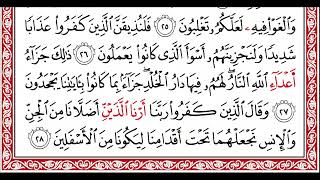 وَالْغَوْا فِيهِ لَعَلَّكُمْ تَغْلِبُونَ ٢٥ فَلَنُذِيقَنَّ الَّذِينَ كَفَرُوا عَذَابًا
شَدِيدًا وَلَنَجْزِيَنَّهُمْ أَسْوَأَ الَّذِي كَانُوا يَعْمَلُونَ ٢٦ ذَٰلِكَ جَزَاءُ
أَعْدَاءِ اللَّهِ النَّارُ لَهُمْ فِيهَا دَارُ الْخُلْدِ جَزَاءً بِمَا كَانُوا بِآيَاتِنَا يَجْحَدُونَ
٢٧ وَقَالَ الَّذِينَ كَفَرُوا رَبَّنَا أَرِنَا الَّذَيْنِ أَضَلَّانَا مِنَ الْجِنِّ
وَالْإِنسِ نَجْعَلْهُمَا تَحْتَ أَقْدَامِنَا لِيَكُونَا مِنَ الْأَسْفَلِينَ ٢٨